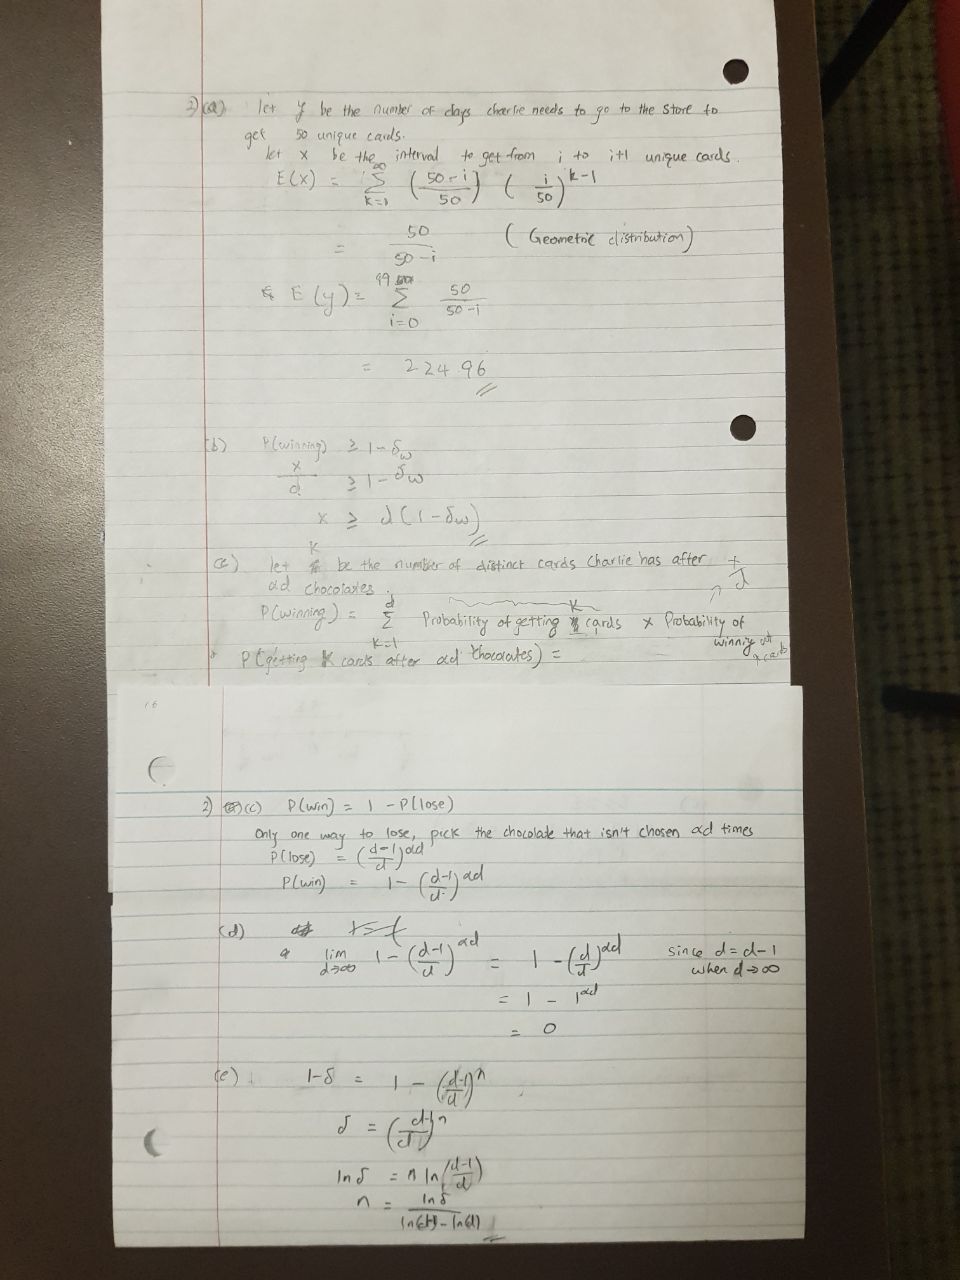 2) (a) let y be the number of days charlie needs to go to the store to
get 50 unique cards.
let x be the interval to get from i to i+1 unique cards.
E(x) = ∞ Σ k=1 (50-i / 50) (i / 50)^k-1
= 50 / 50-i (Geometric distribution)
E(y) = 49 Σ i=0 50 / 50-i
= 224.96
(b) P(winning) ≥ 1-δw
x / d ≥ 1-δw
x ≥ d(1-δw)
(c) let K be the number of distinct cards Charlie has after
αd chocolates.
P(winning) = d Σ k=1 Probability of getting K cards x Probability of
winning
P(getting K cards after αd chocolates) =
16
2) (c) P(win) = 1 - P(lose)
Only one way to lose, pick the chocolate that isn't chosen αd times
P(lose) = (d-1 / d)^αd
P(win) = 1-(d-1 / d)^αd
(d)
lim d→∞ 1-(d-1 / d)^αd = 1-(d / d)^αd since d=d-1
when d→∞
= 1 - 1^αd
= 0
(e) 1-δ = 1-(d-1 / d)^n
δ = (d-1 / d)^n
ln δ = n ln(d-1 / d)
n = ln δ / ln(d-1) - ln(d)